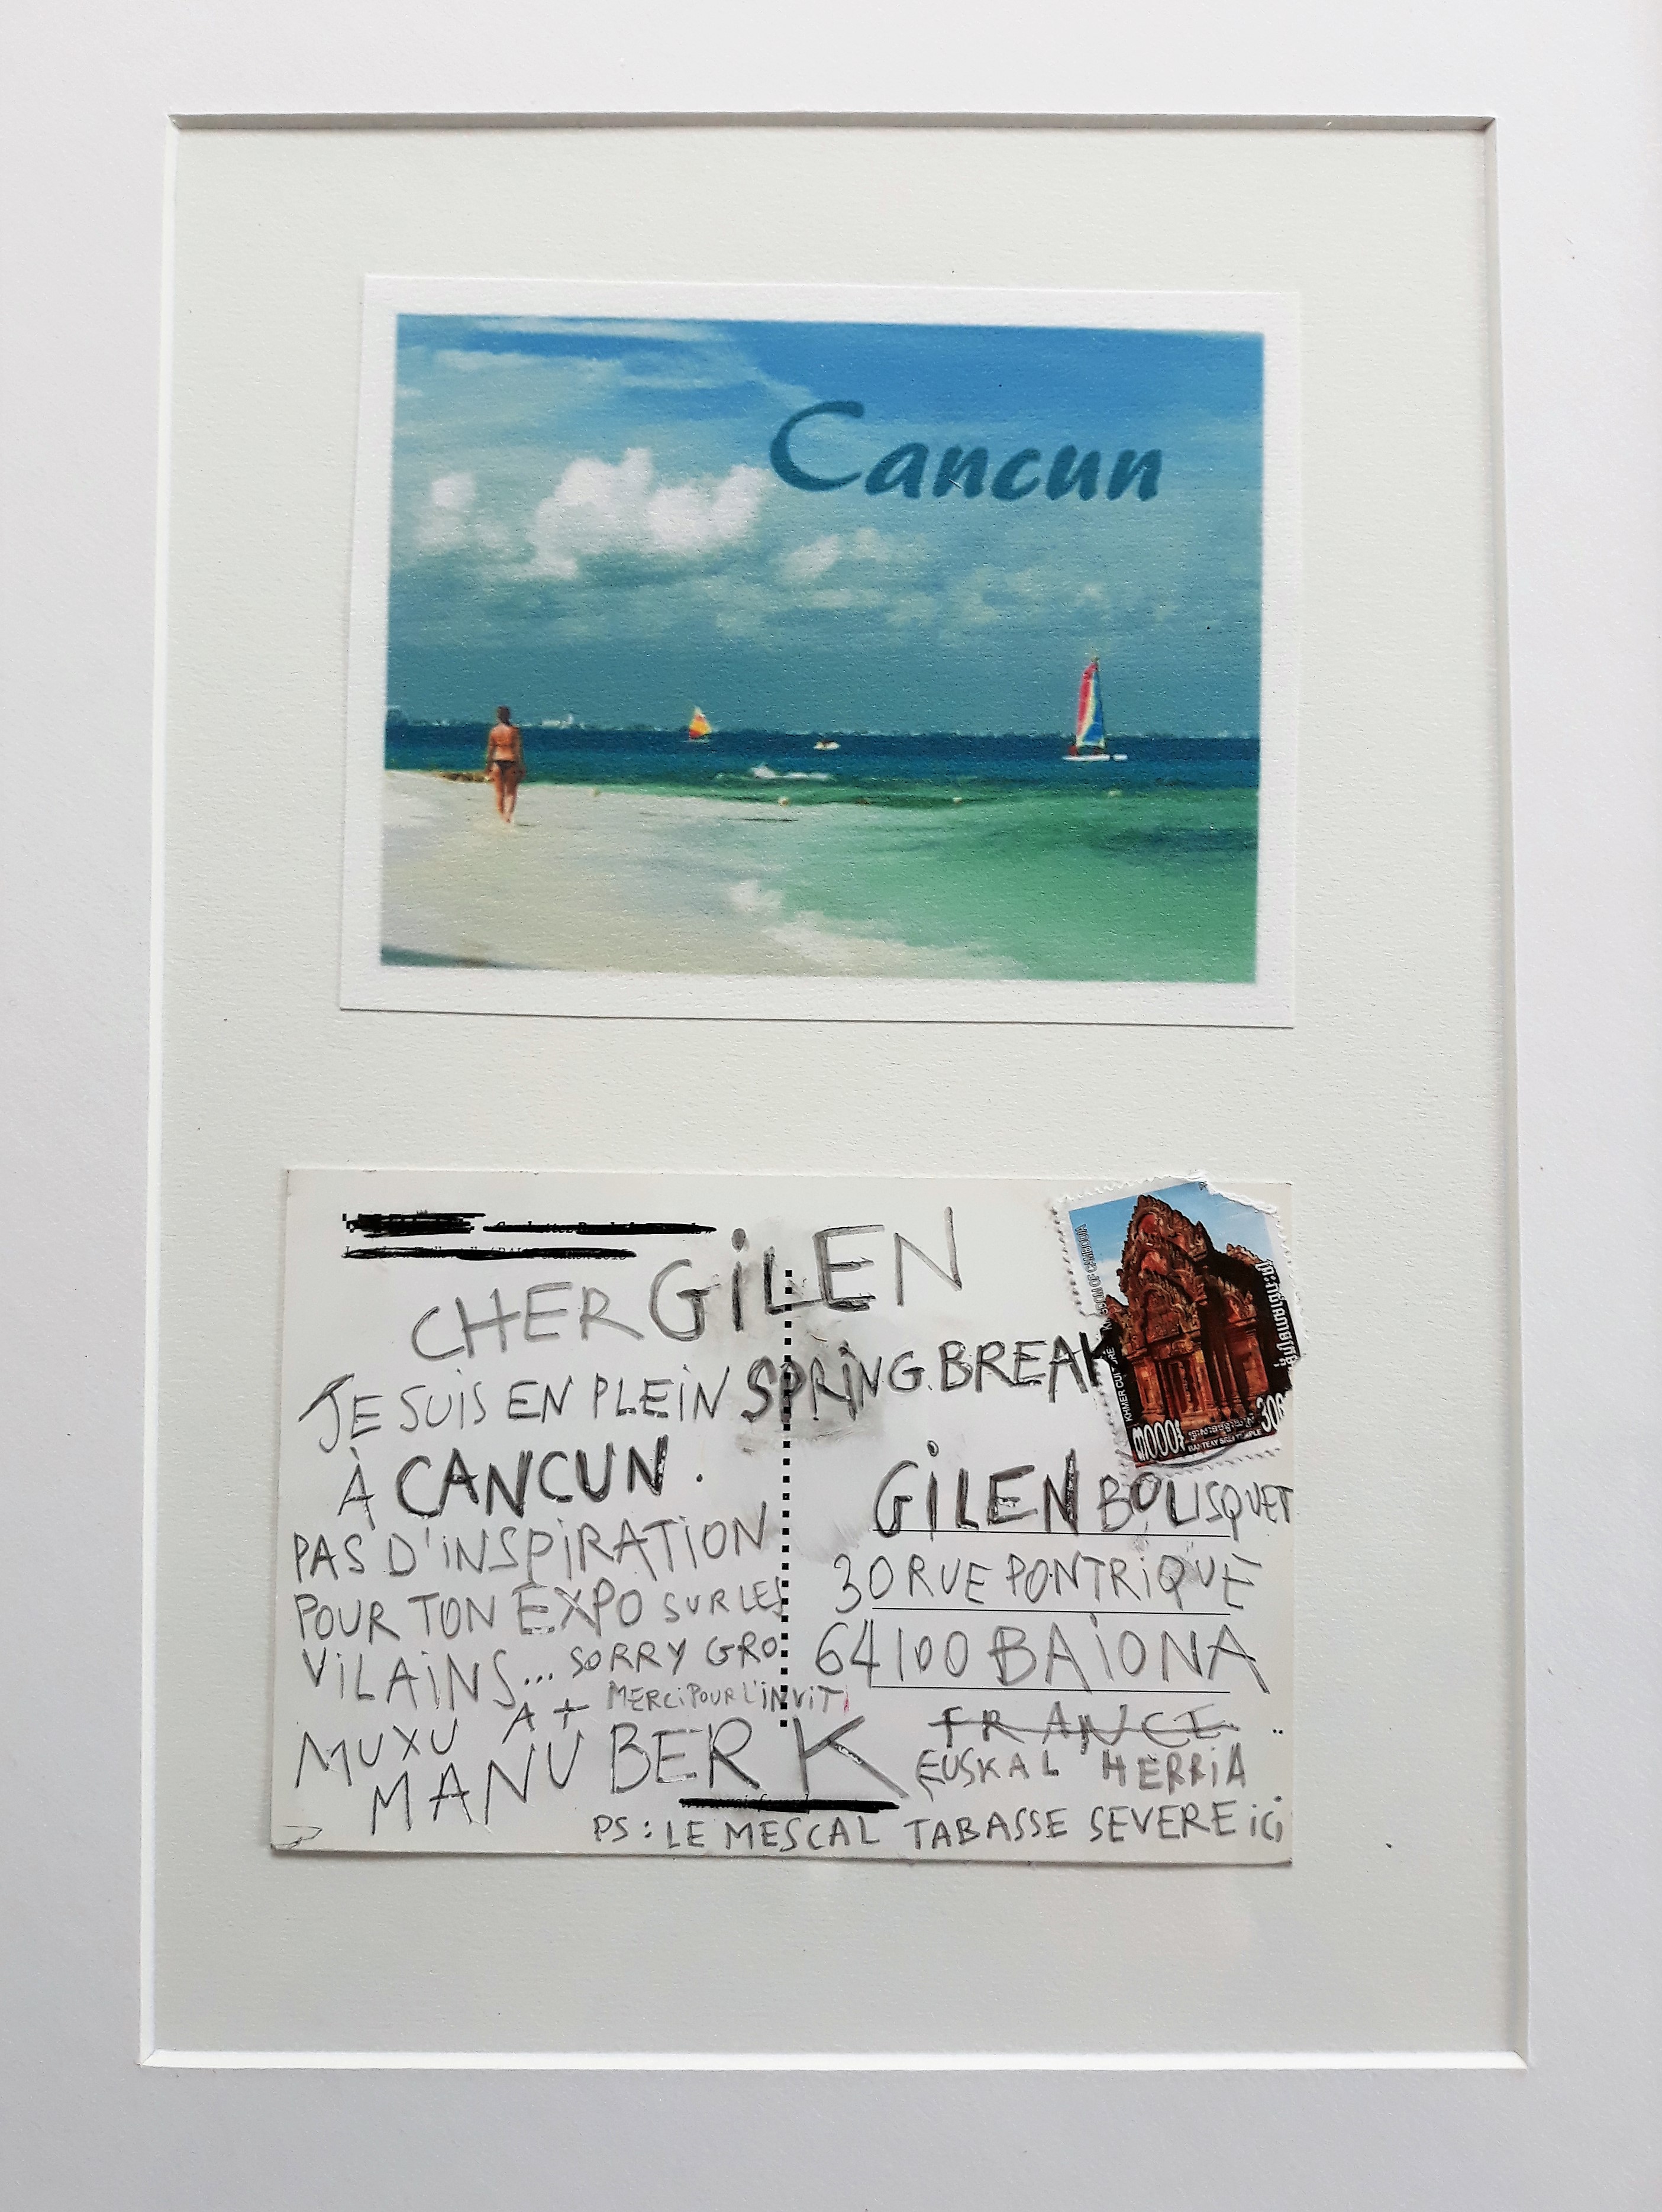 Cancun
CHER GiLEN
JE SUiS EN PLEiN SPRiNG BREAK
À CANCUN.
PAS D'iNSPiRATiON
POUR TON EXPO SUR LES
ViLAiNS... SORRY GRO
A + MERCi POUR L'iNViT
MUXU
MANU BER K
GiLEN BOUSQUET
30 RUE PONTRiQUE
64100 BAiONA
FRANCE
EUSKAL HERRiA
PS : LE MESCAL TABASSE SEVERE iCi
KINGDOM OF CAMBODIA
KHMER CULTURE
BANTEAY SREI TEMPLE